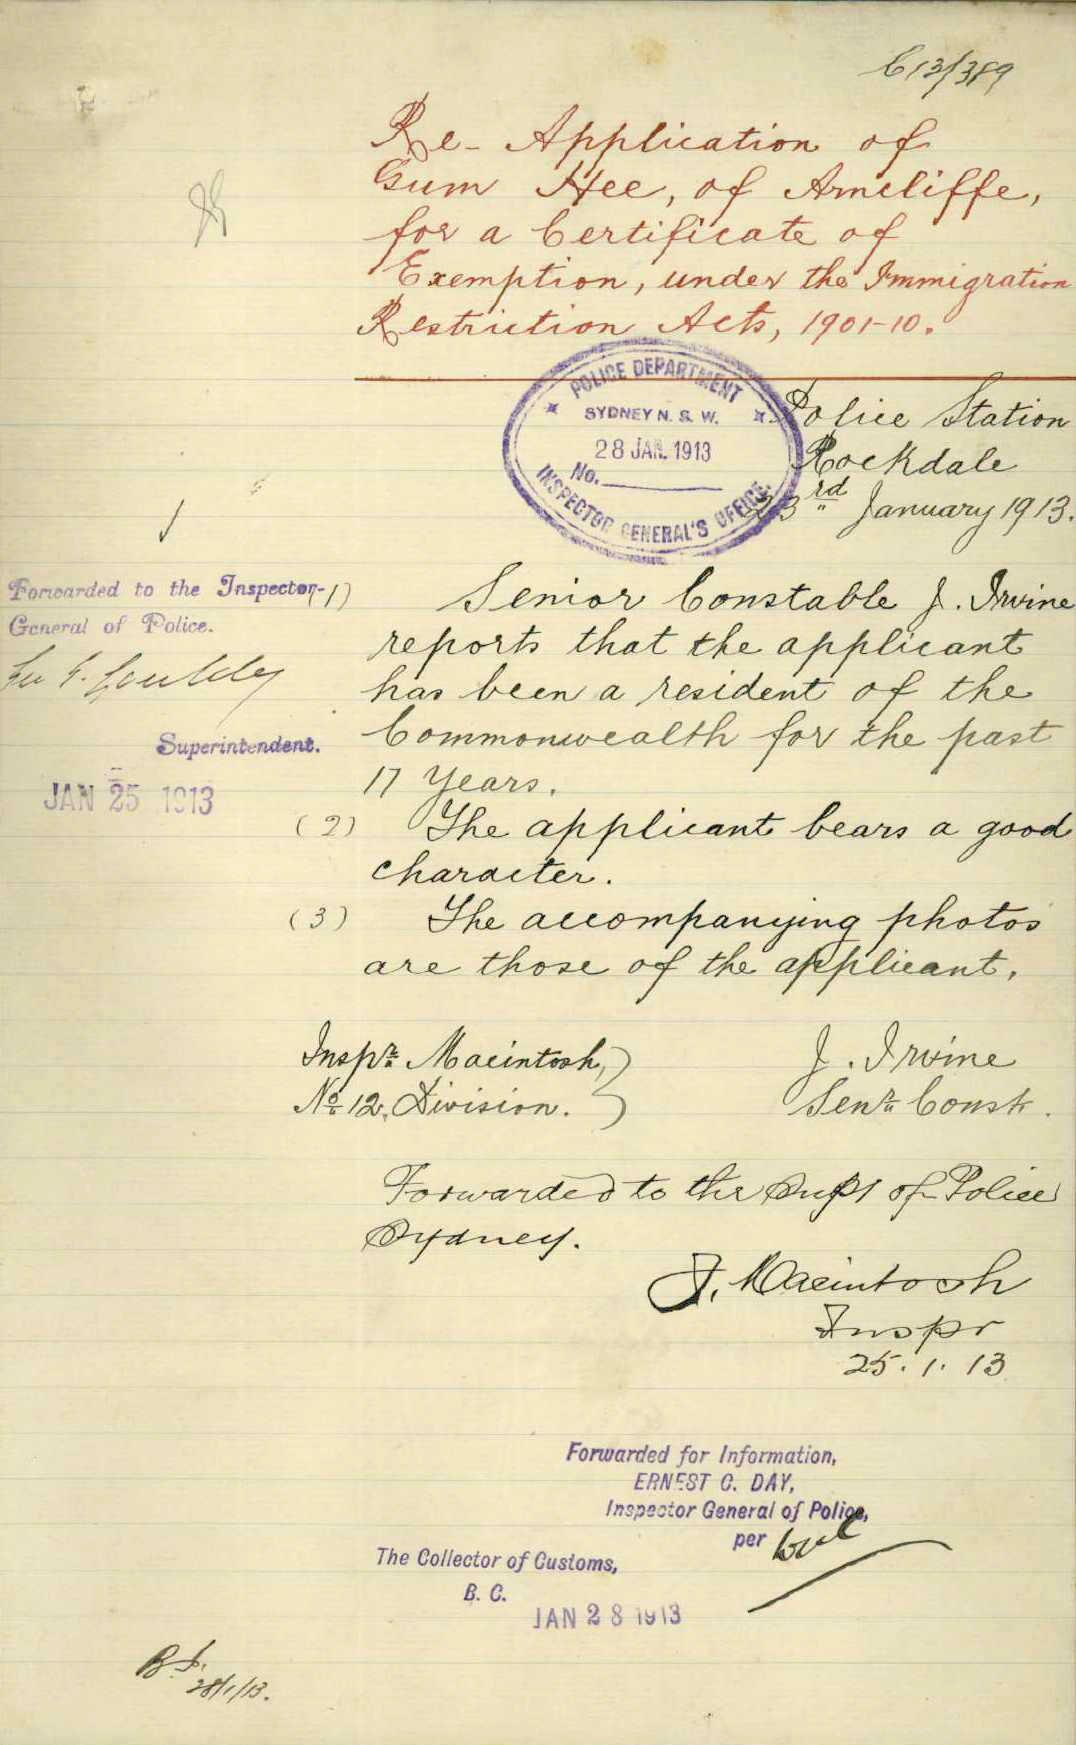 C13/389
Re- Application of
Gum Hee, of Arncliffe,
for a Certificate of
Exemption, under the Immigration
Restriction Acts, 1901-10.
POLICE DEPARTMENT
SYDNEY N. S. W.
28 JAN. 1913
No.
INSPECTOR GENERAL'S OFFICE.
Police Station
Rockdale
23rd January 1913.
Forwarded to the Inspector-
General of Police.
Superintendent.
JAN 25 1913
(1) Senior Constable J. Irvine
reports that the applicant
has been a resident of the
Commonwealth for the past
17 Years.
(2) The applicant bears a good
character.
(3) The accompanying photos
are those of the applicant.
Inspr. Macintosh,
No 12. Division.
J. Irvine
Senr. Const.
Forwarded to the Supt of Police
Sydney.
J. Macintosh
Inspr
25.1.13
Forwarded for Information,
ERNEST C. DAY,
Inspector General of Police,
per
The Collector of Customs,
B. C.
JAN 28 1913
28/1/13.